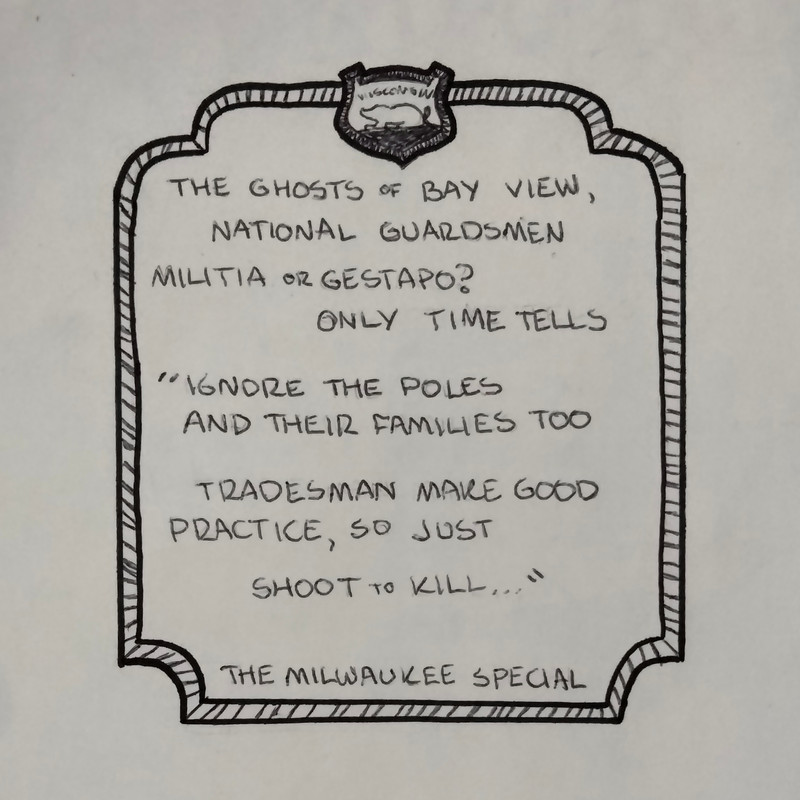 WISCONSIN
THE GHOSTS OF BAY VIEW,
NATIONAL GUARDSMEN
MILITIA OR GESTAPO?
ONLY TIME TELLS
"IGNORE THE POLES
AND THEIR FAMILIES TOO
TRADESMAN MAKE GOOD
PRACTICE, SO JUST
SHOOT TO KILL..."
THE MILWAUKEE SPECIAL